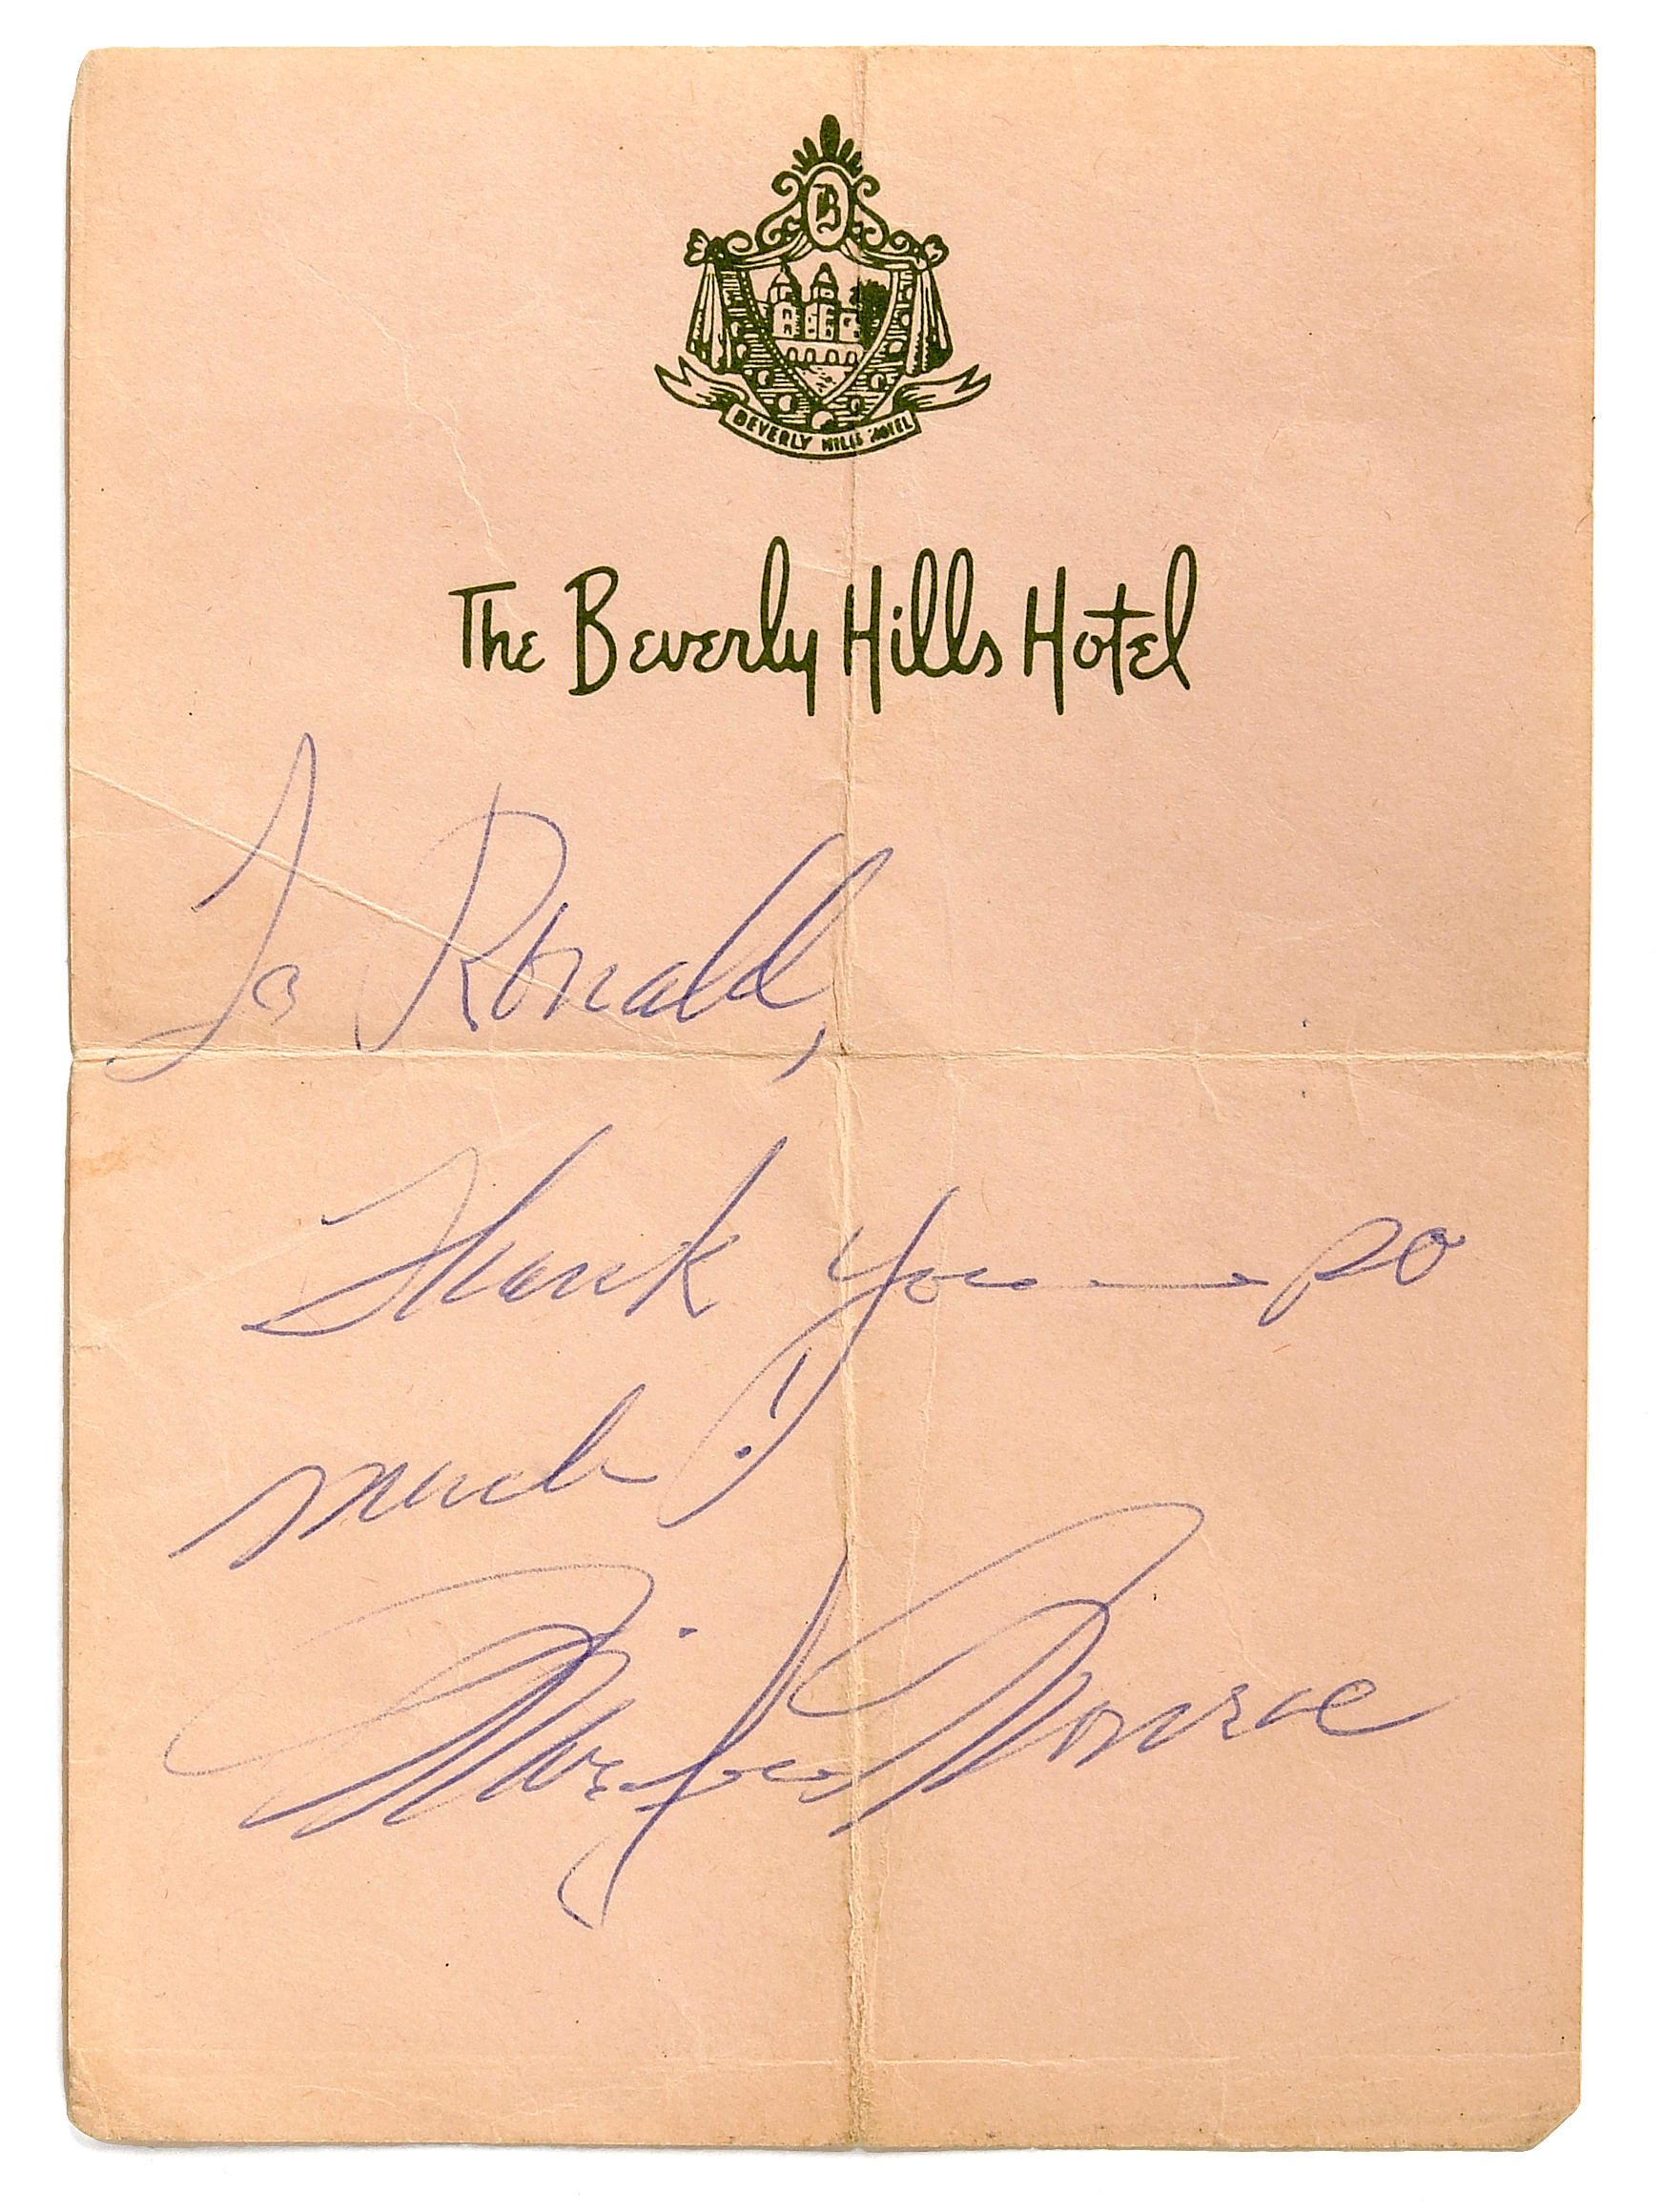 B
BEVERLY HILLS HOTEL
The Beverly Hills Hotel
To Ronald,
Thank you so
much!
Marilyn Monroe